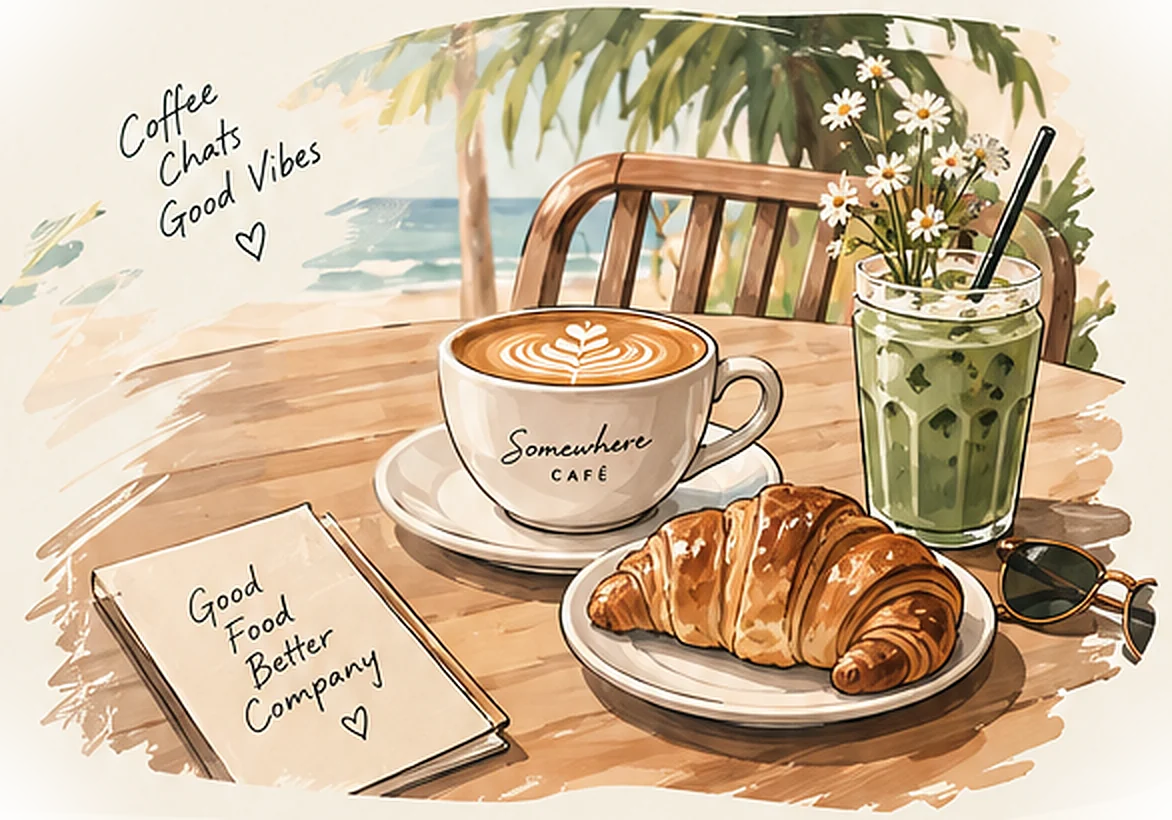 Coffee
Chats
Good Vibes
Somewhere
CAFÉ
Good
Food
Better
Company